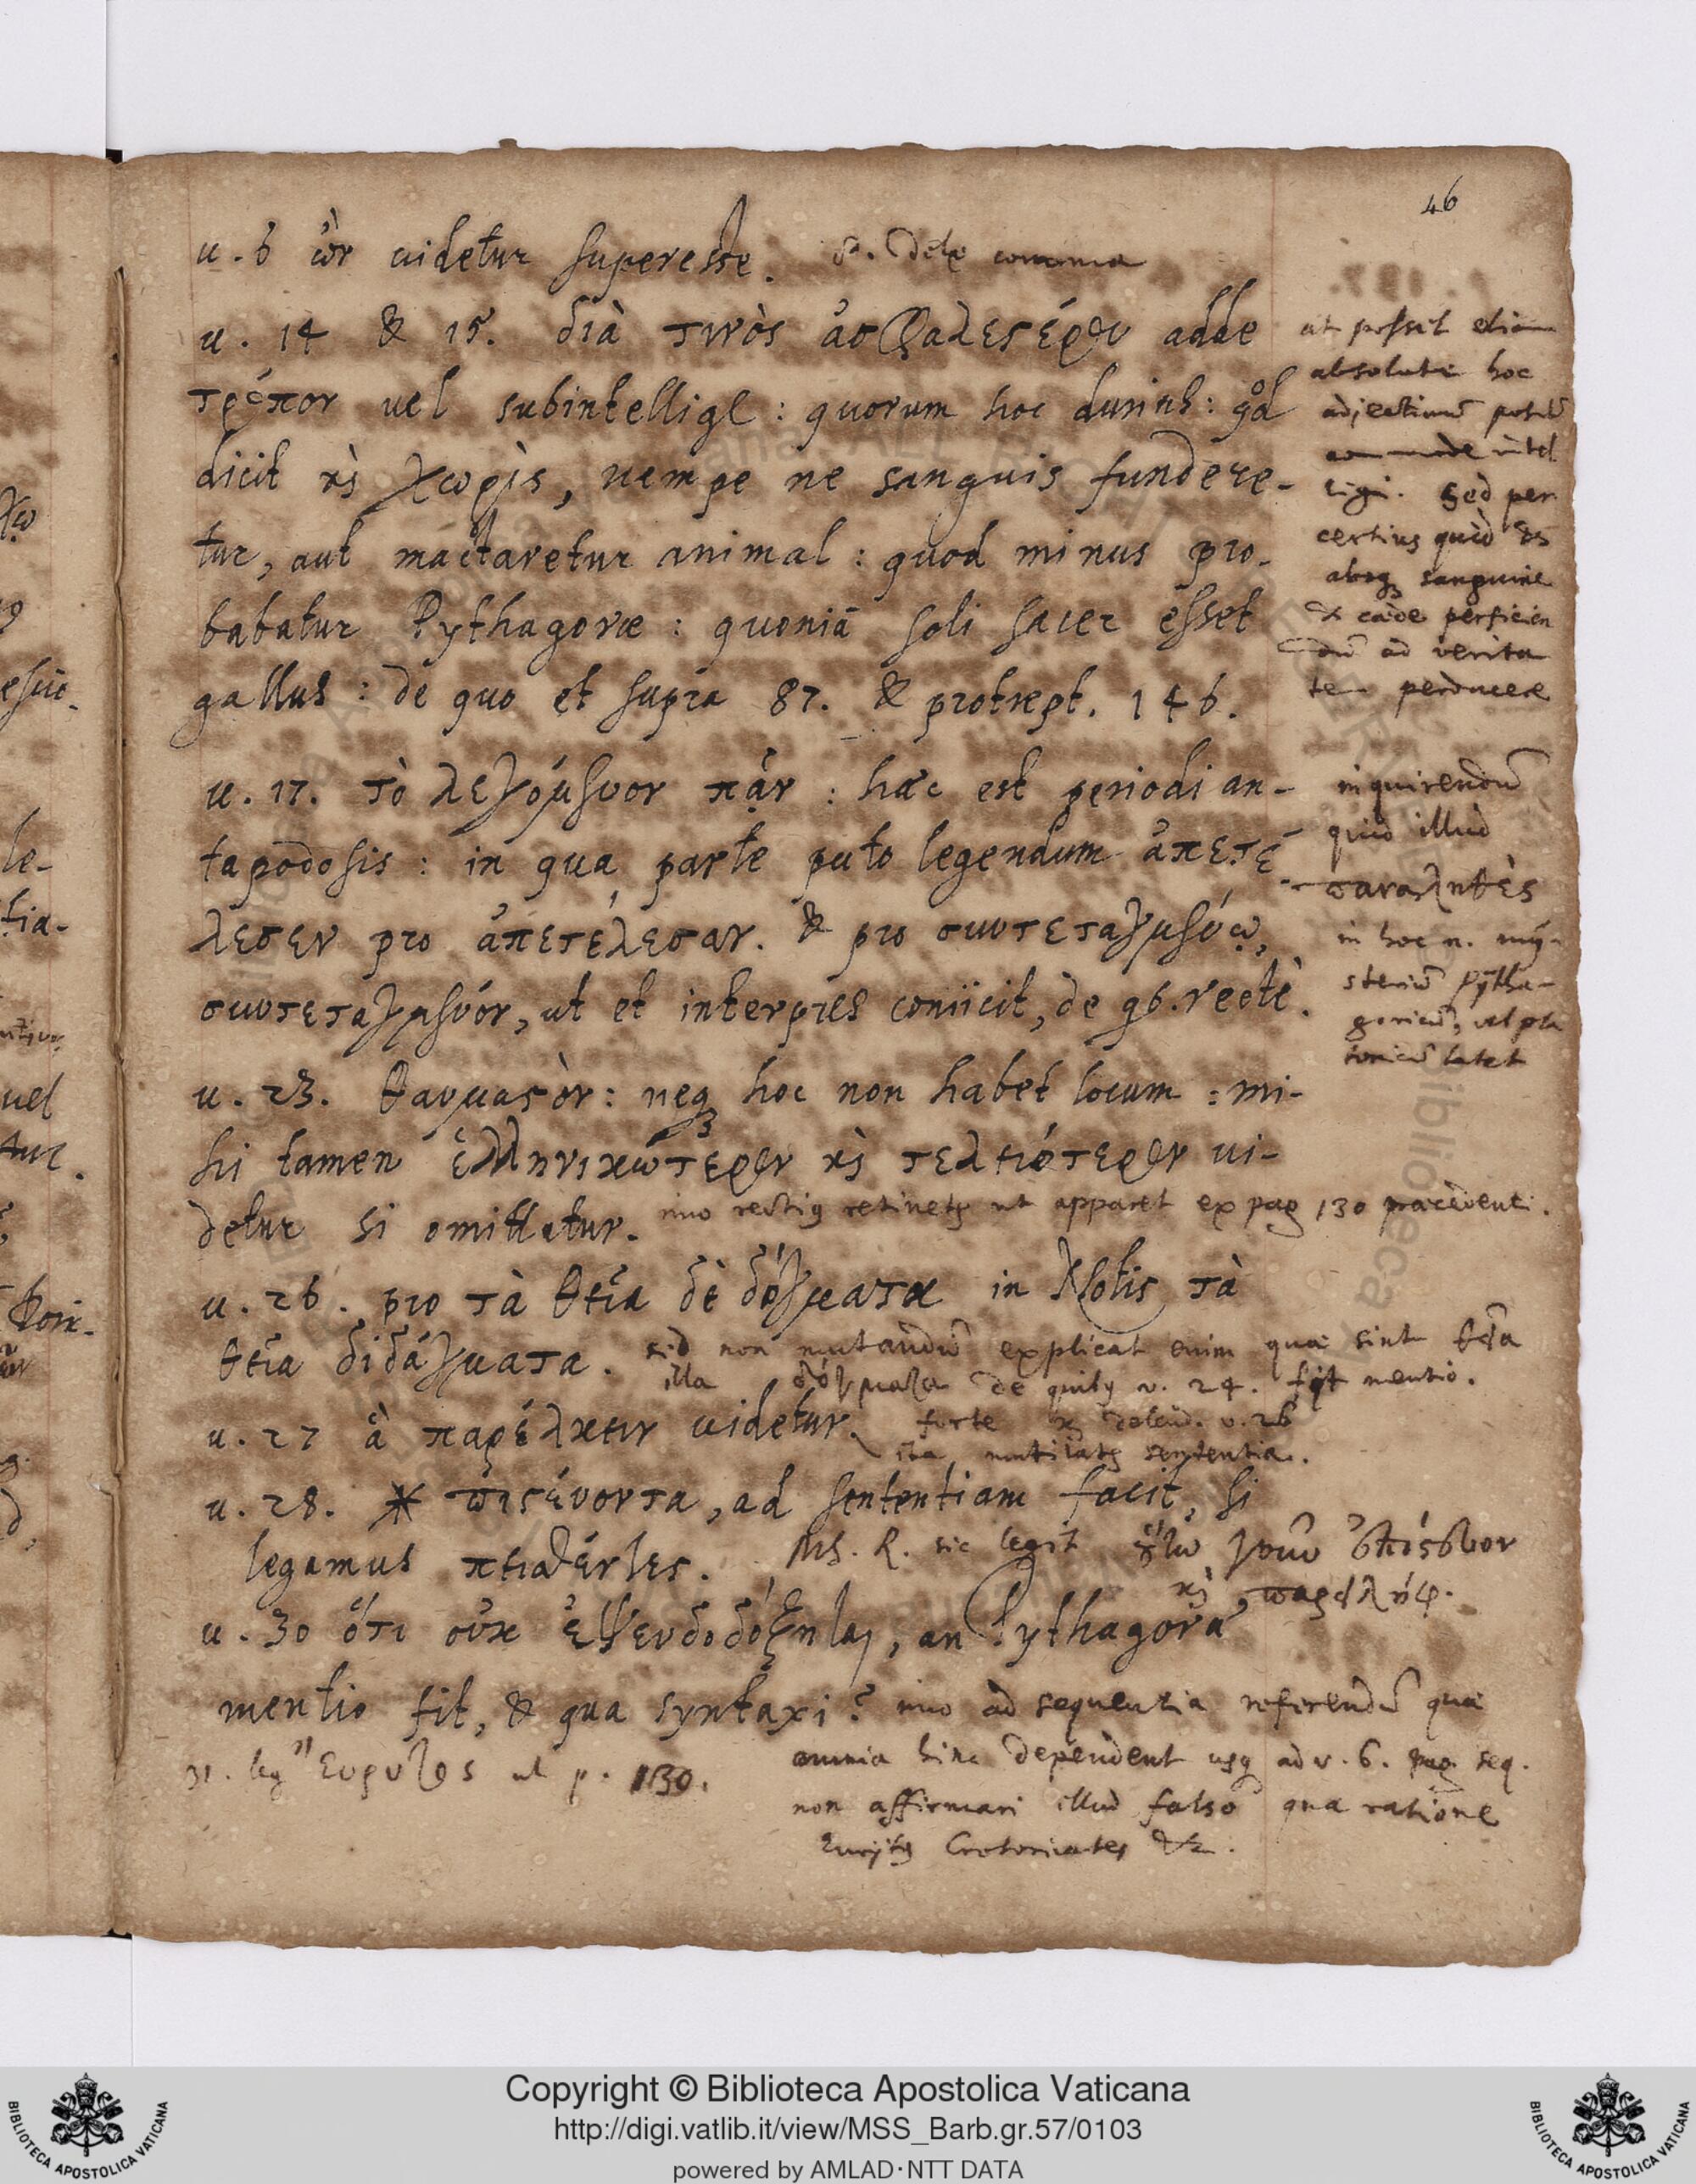 46
u. 6 ὢν uidetur superesse. Dele comma
u. 14 & 15. διὰ τινὸς ἀσφαλεστέρου adde
τρόπον uel subintellige: quorum hoc durius: qd
dicit καὶ χωρὶς, nempe ne sanguis fundere-
tur, aut mactaretur animal: quod minus pro-
babatur Pythagoræ: quoniā soli sacer esset
gallus: de quo et supra 87. & protrept. 146.
ut possit etiam
absolute hoc
adjectivū positū
commode intel
ligi. Sed per
certius quid
absq sanguine
& cæde perficien
dū ad verita
tem perducere
u. 17. τὸ λεγόμενον πᾶν: hæc est periodi an-
tapodosis: in qua parte puto legendum ἀπετέ-
λεσεν pro ἀπετέλεσαν. & pro συντεταγμένῳ,
συντεταγμένον, ut et interpres coniicit, de 96. recte.
inquirendū
quid illud
παραληφθὲς
in hoc n. my-
steriū Pytha-
goricū, vel pla
tonicū latet
u. 23. θαυμαστὸν: neq hoc non habet locum: mi-
hi tamen ἑλληνικώτερον καὶ τελειότερον ui-
detur si omittatur. imo rectiꝰ retinetꝰ ut apparet ex pag 130 præcedenti.
u. 26. pro τὰ θεῖα δὲ δόγματα in Notis τὰ
θεῖα διδάγματα. sed non mutandū explicat enim quæ sint θεῖα
illa δόγματα de quibꝰ v. 24. fit mentio.
u. 27 ἃ παρέλκειν uidetur. forte καὶ delend. v. 26
ita mutilatꝰ sententia.
u. 28. * πιστεύοντα, ad sententiam facit, si
legamus πεισθέντες. Ms. R. sic legit
καὶ παρειλήφ.
u. 30 ὅτι οὐκ ἐψευδοδόξηται, an Pythagoræ
mentio fit, & qua syntaxi? imo ad sequentia referendū quæ
omnia hinc dependent usq ad v. 6. pag. seq.
31. leg Ἔυρυτος ut p. 130.
non affirmari illud falso qua ratione
Eurytꝰ Crotoniates &c.
Copyright © Biblioteca Apostolica Vaticana
http://digi.vatlib.it/view/MSS_Barb.gr.57/0103
powered by AMLAD·NTT DATA
BIBLIOTECA APOSTOLICA VATICANA
BIBLIOTECA APOSTOLICA VATICANA